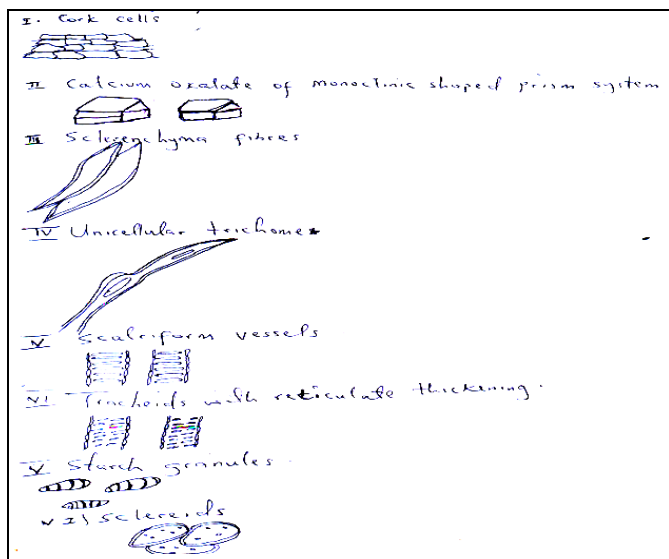 I. Cork cells
II Calcium oxalate of monoclinic shaped prism system
III Sclerenchyma fibres
IV Unicellular trichomes
V Scalriform vessels
VI Tracheids with reticulate thickening.
V Starch granules
VII Sclereids